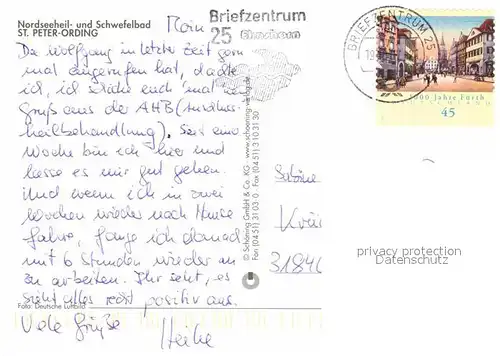 Nordseeheil- und Schwefelbad
ST. PETER-ORDING
Moin
Da Wolfgang in letzter Zeit gern
mal angerufen hat, dachte
ich, ich schicke euch mal einen
Gruß aus der AHB (Anschluss-
heilbehandlung). Seit einer
Woche bin ich hier und
lasse es mir gut gehen.
Und wenn ich in zwei
Wochen wieder nach Hause
fahre, fange ich abermals
mit 6 Stunden wieder an
zu arbeiten. Ihr seht, es
sieht alles positiv aus.
Foto: Deutsche Luftbild
Viele Grüße
Heike
© Schöning GmbH & Co. KG · www.schoening-verlag.de
Fon (04 51) 31 03 0 · Fax (04 51) 3 10 31 30
Briefzentrum
25 Elmshorn
BRIEFZENTRUM 25
1000 Jahre Fürth
45
318
privacy protection
Datenschutz